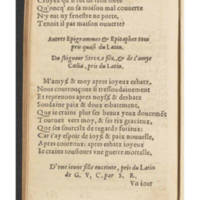 Qu'onc q' en sa maison mal couverte
N'y eut ny fenestre, ne porte
Tenoit il pas maison ouuerte?
Autres Epigrammes & Epitaphes tous
pris quasi du Latin.
Du seigneur &c. de l'amye
Catha, pris du Latin.
M'amye & moy apres ioyeux esbatz,
Nous courrouçons si tressoudainement
Et reprenons apres noysɇ & debatz
Soudaine paix & doux esbatement,
Que ie crains plus ses beaux yeux doucement
Tournez vers moy, & ses ris gracieux,
Que ses sourcilz de regardz furieux:
Car i'ay espoir de ioyɇ & paix nouuelle,
Apres courroux: apres esbatz ioyeux
Ie crains tousiours vne guerre mortelle.
D'vne ieune fille enceinte, pris du Latin
de G. V, C. par S. R.
Vn iour